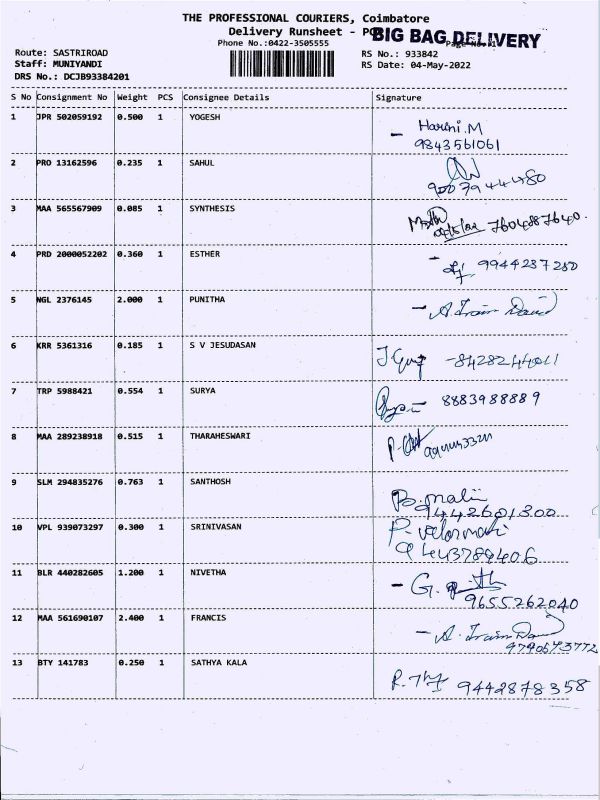 THE PROFESSIONAL COURIERS, Coimbatore
Delivery Runsheet - POD
BIG BAG DELIVERY
Phone No.:0422-3505555
Route: SASTRIROAD
RS No.: 933842
Staff: MUNIYANDI
RS Date: 04-May-2022
DRS No.: DCJB93384201
S No Consignment No Weight PCS Consignee Details Signature
1 JPR 502059192 0.500 1 YOGESH
- Harini.M
9843561061
2 PRO 13162596 0.235 1 SAHUL
9003944480
3 MAA 565567909 0.085 1 SYNTHESIS
7604887640.
4 PRD 2000052202 0.360 1 ESTHER
- 9944237280
5 NGL 2376145 2.000 1 PUNITHA
- A. Irain David
6 KRR 5361316 0.185 1 S V JESUDASAN
-8428244011
7 TRP 5988421 0.554 1 SURYA
8883988889
8 MAA 289238918 0.515 1 THARAHESWARI
9 SLM 294835276 0.763 1 SANTHOSH
9442601300
10 VPL 939073297 0.300 1 SRINIVASAN
P. Valarmati
9443789406
11 BLR 440282605 1.200 1 NIVETHA
- G.
9655262040
12 MAA 561690107 2.400 1 FRANCIS
- A. Irain David
9790673772
13 BTY 141783 0.250 1 SATHYA KALA
9442878358